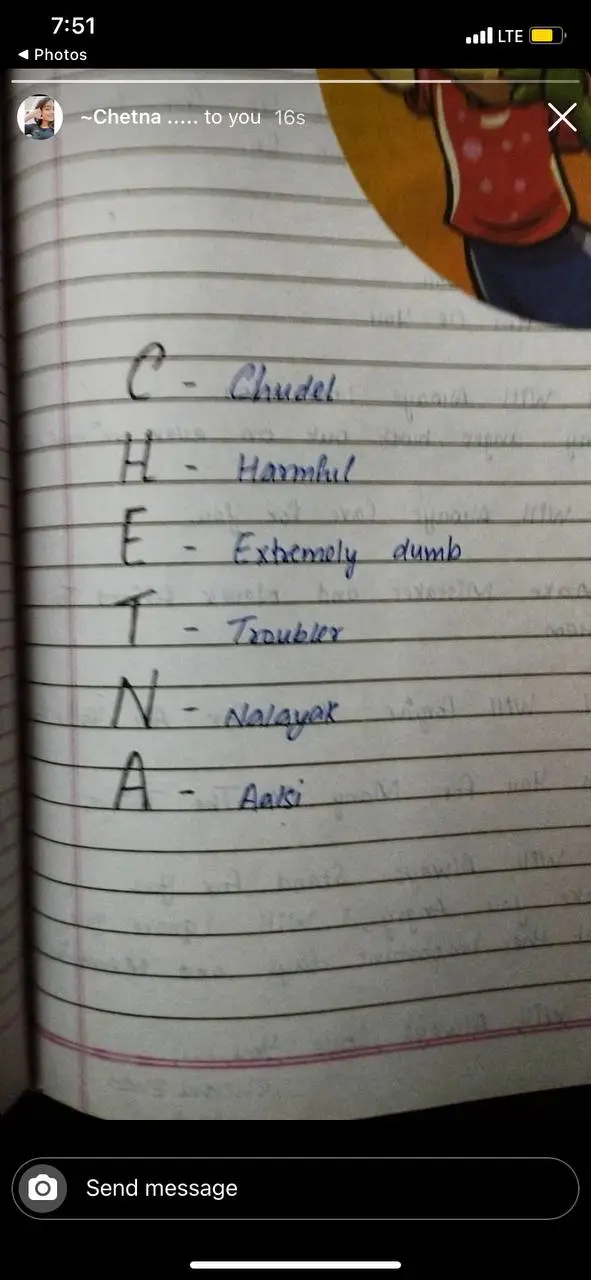 7:51
LTE
◄ Photos
~Chetna ..... to you 16s
C - Chudel
H - Harmful
E - Extremely dumb
T - Troubler
N - Nalayak
A - Aalsi
Send message